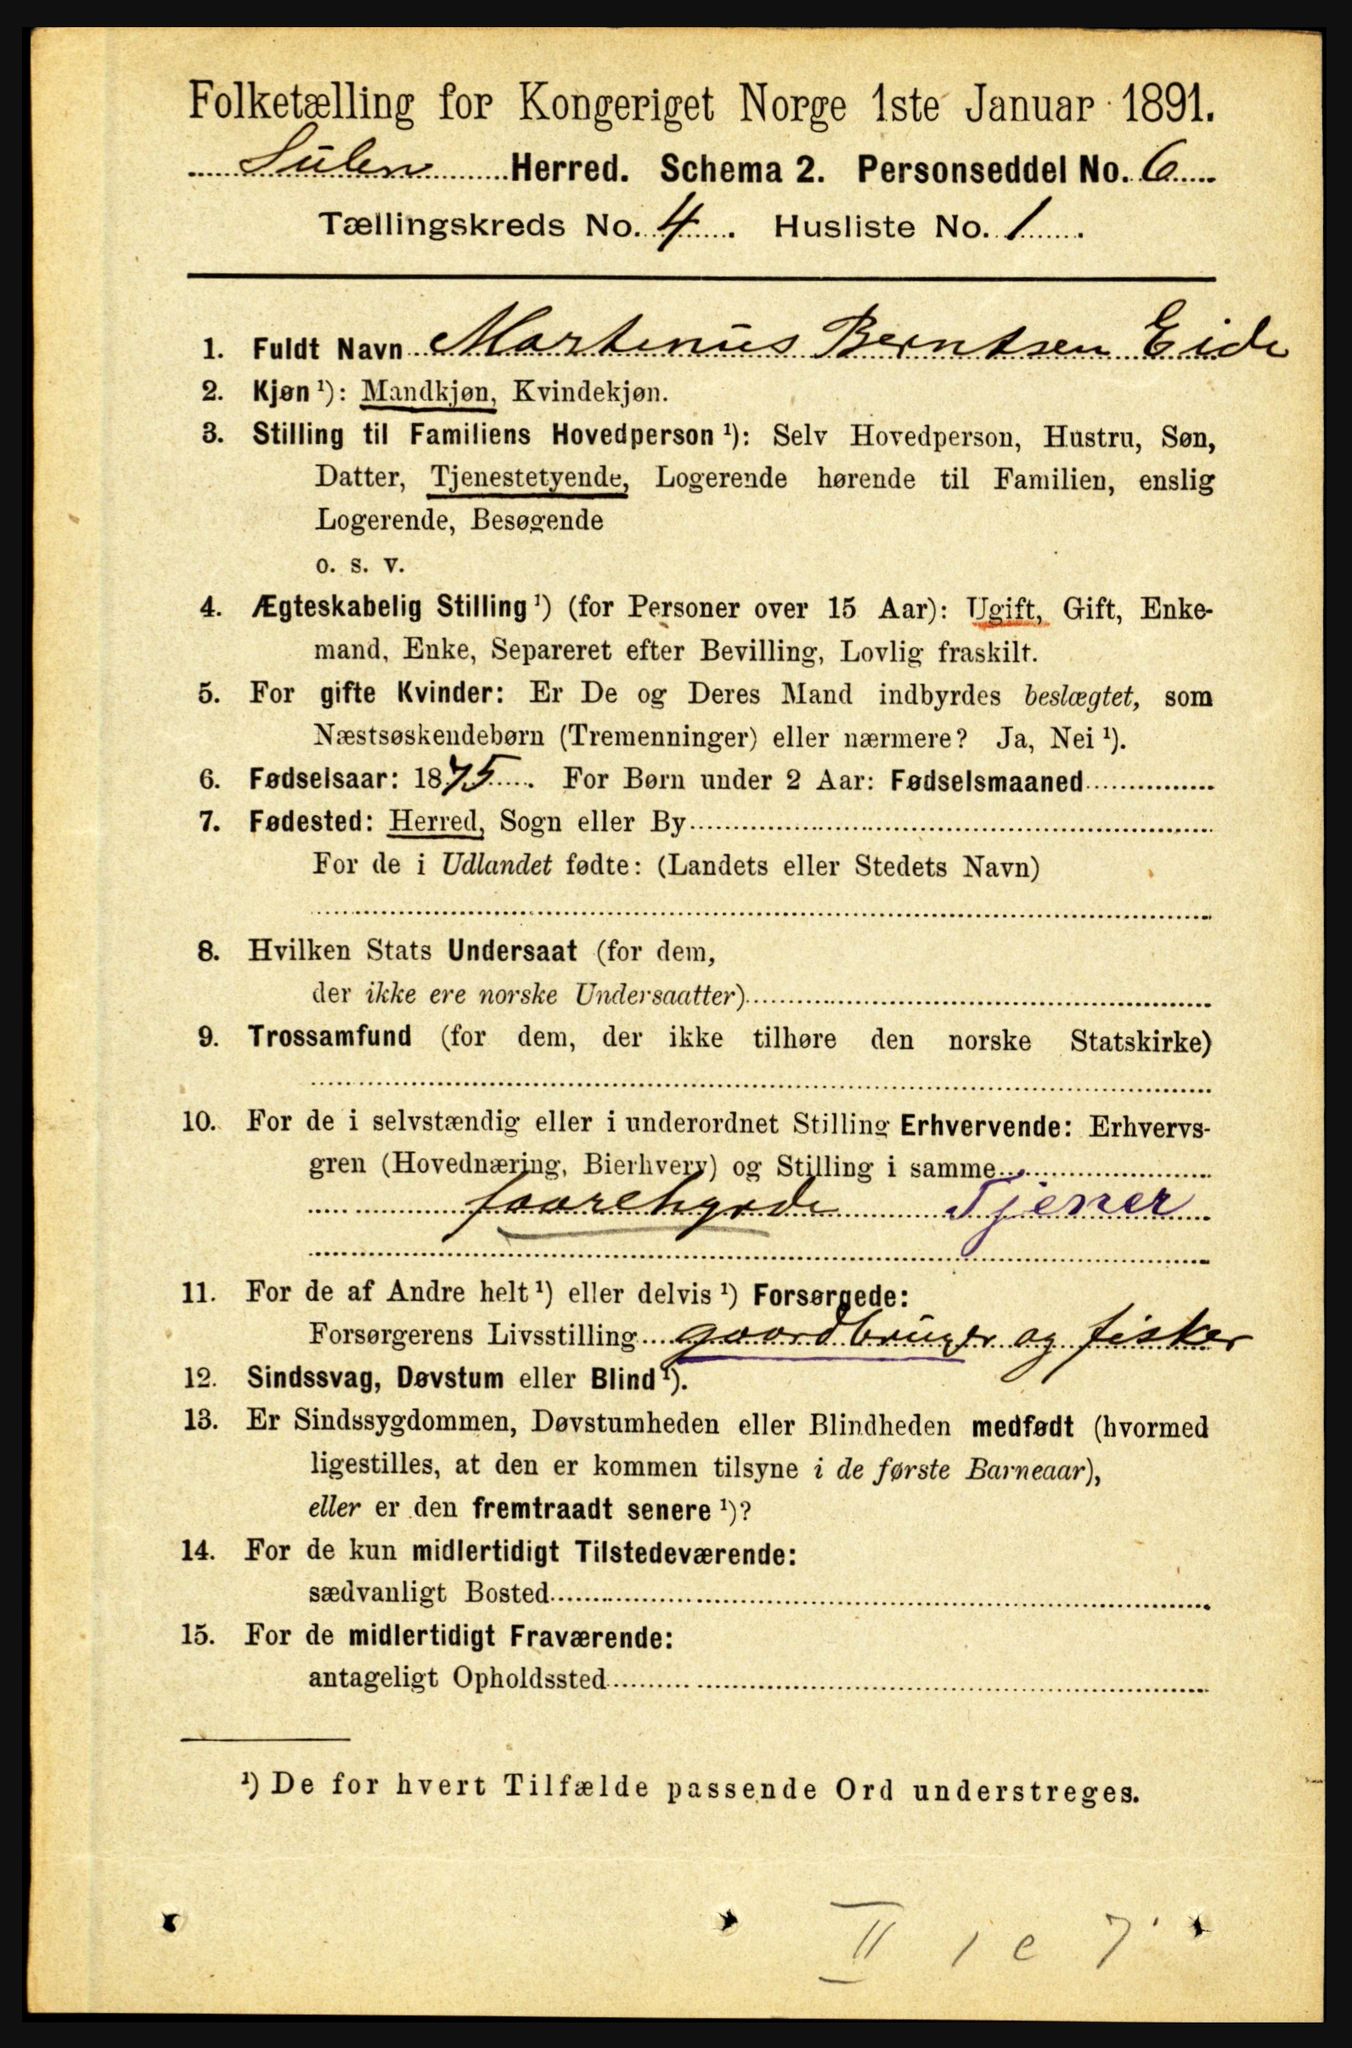 Folketælling for Kongeriget Norge 1ste Januar 1891.
Sulen Herred. Schema 2. Personseddel No. 6
Tællingskreds No. 4. Husliste No. 1.
1. Fuldt Navn Martinus Berntsen Eide
2. Kjøn ¹): Mandkjøn, Kvindekjøn.
3. Stilling til Familiens Hovedperson ¹): Selv Hovedperson, Hustru, Søn,
Datter, Tjenestetyende, Logerende hørende til Familien, enslig
Logerende, Besøgende
o. s. v.
4. Ægteskabelig Stilling ¹) (for Personer over 15 Aar): Ugift, Gift, Enke-
mand, Enke, Separeret efter Bevilling, Lovlig fraskilt.
5. For gifte Kvinder: Er De og Deres Mand indbyrdes beslægtet, som
Næstsøskendebørn (Tremenninger) eller nærmere? Ja, Nei ¹).
6. Fødselsaar: 1875. For Børn under 2 Aar: Fødselsmaaned
7. Fødested: Herred, Sogn eller By
For de i Udlandet fødte: (Landets eller Stedets Navn)
8. Hvilken Stats Undersaat (for dem,
der ikke ere norske Undersaatter)
9. Trossamfund (for dem, der ikke tilhøre den norske Statskirke)
10. For de i selvstændig eller i underordnet Stilling Erhvervende: Erhvervs-
gren (Hovednæring, Bierhverv) og Stilling i samme
faarehyrde Tjener
11. For de af Andre helt ¹) eller delvis ¹) Forsørgede:
Forsørgerens Livsstilling gaardbruger og fisker
12. Sindssvag, Døvstum eller Blind ¹).
13. Er Sindssygdommen, Døvstumheden eller Blindheden medfødt (hvormed
ligestilles, at den er kommen tilsyne i de første Barneaar),
eller er den fremtraadt senere ¹)?
14. For de kun midlertidigt Tilstedeværende:
sædvanligt Bosted
15. For de midlertidigt Fraværende:
antageligt Opholdssted
¹) De for hvert Tilfælde passende Ord understreges.
II 1 c 7